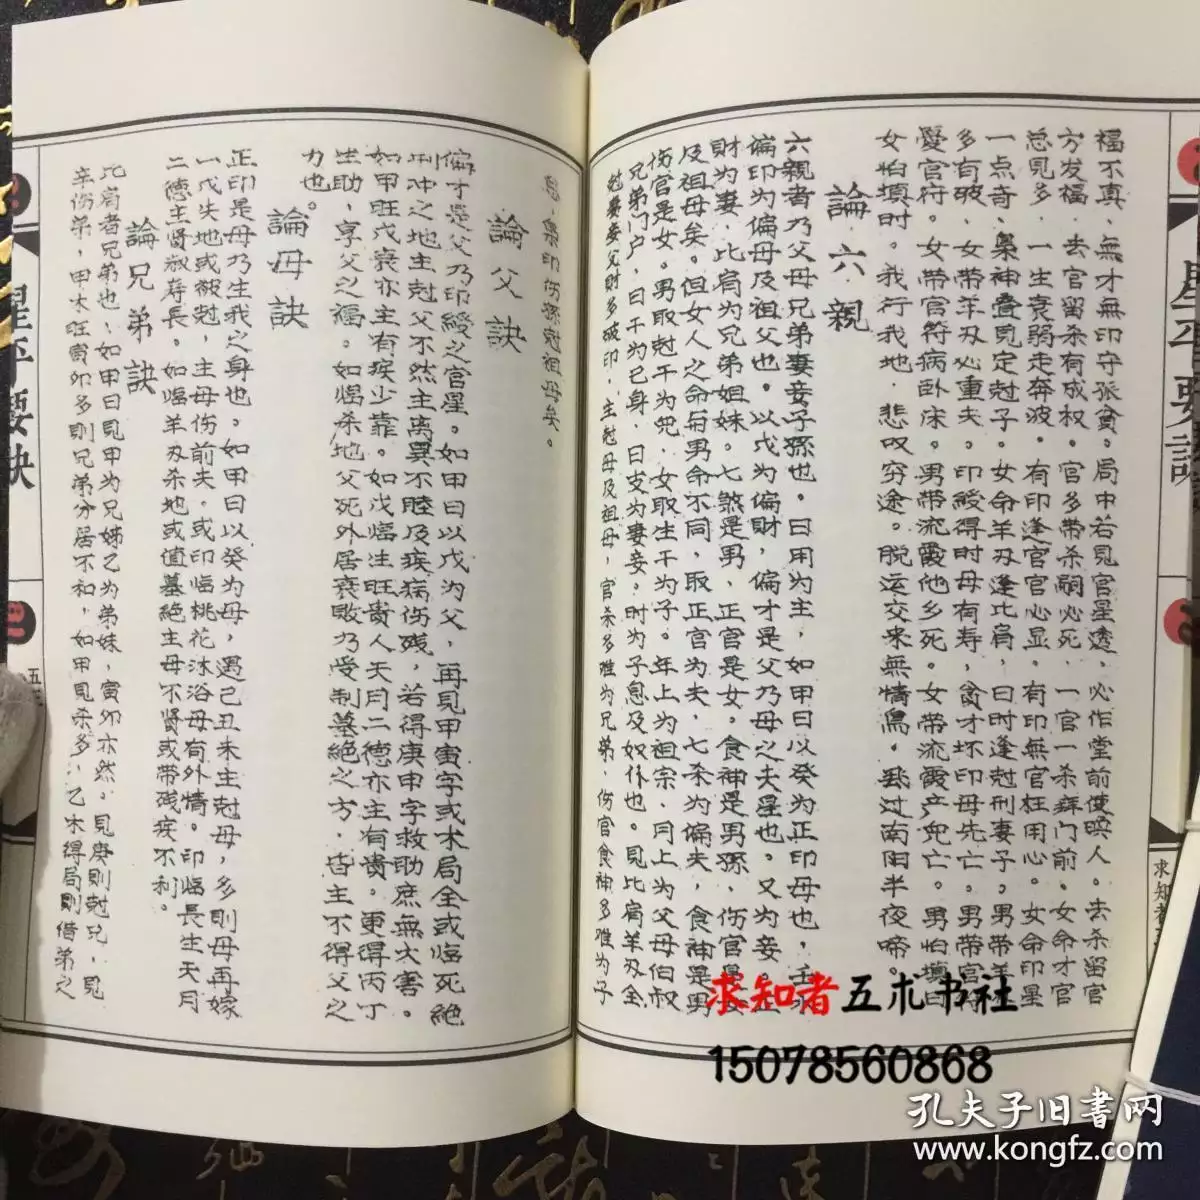 福不真，無才無印守孤貧。局中若見官星透，必作堂前使喚人。去杀留官
方发福，去官留杀有成权。官多带杀嗣必死，一官一杀病门前。女命才官
总見多，一生衰弱走奔波。有印逢官官必显，有印無官枉用心。女命印星
一点奇，梟神疊見定尅子。女命羊刃逢比肩，日时逢尅刑妻子。男带羊
多有破，女带羊刃必重夫。印綬得时母有寿，貪才坏印母先亡。男带官符
愛官府。女带官符病卧床。男带流霞他乡死。女带流霞产儿亡。男怕填日
女怕填时。我行我地，悲叹穷途。脱运交来無情馬，过南阳半夜啼。
論六親
六親者乃父母兄弟妻妾子孫也。日用为主，如甲日以癸为正印母也，壬水
偏印为偏母及祖父也。以戊为偏財，偏才是父乃母之夫星也。又为妾。正
財为妻，比肩为兄弟姐妹。七煞是男，正官是女。食神是男孫，伤官是女
及祖母矣。但女人之命与男命不同，取正官为夫，七杀为偏夫，食神是男
伤官是女。男取尅干为児，女取生干为子。年上为祖宗，月上为父母伯叔
兄弟门户，日干为己身，日支为妻妾。时为子息及奴仆也。見比肩羊刃全
尅妻妾父財多破印，主尅母及祖母，官杀多难为兄弟，伤官食神多难为子
息，梟印伤孫尅祖母矣。
論父訣
偏才是父乃印綬之官星。如甲日以戊为父，再見甲寅字或木局全或临死絶
刑冲之地主尅父不然主离異不睦及疾病伤残，若得庚申字救助庶無大害。
如甲旺戊衰亦主有疾少靠。如戊临生旺贵人天月二德亦主有貴。更得丙丁
生助，享父之福。如临杀地父死外居衰败乃受制墓絶之方，皆主不得父之
力也。
論母訣
正印是母乃生我之身也。如甲日以癸为母，遇己丑未主尅母，多則母再嫁
一戊失地或被尅，主母伤前夫。或印临桃花沐浴母有外情。印临長生天月
二德主賢淑寿長。如临羊刃杀地或值墓絶主母不賢或带残疾不利。
論兄弟訣
比肩者兄弟也，如甲日見甲为兄姊乙为弟妹，寅卯亦然。見庚則尅兄，見
辛伤弟，甲木旺寅卯多則兄弟分居不和，如甲見杀多，乙木得局則借弟之
星平要訣
星平要訣
求知者
五
求知者五术书社
15078560868
孔夫子旧書网
www.kongfz.com